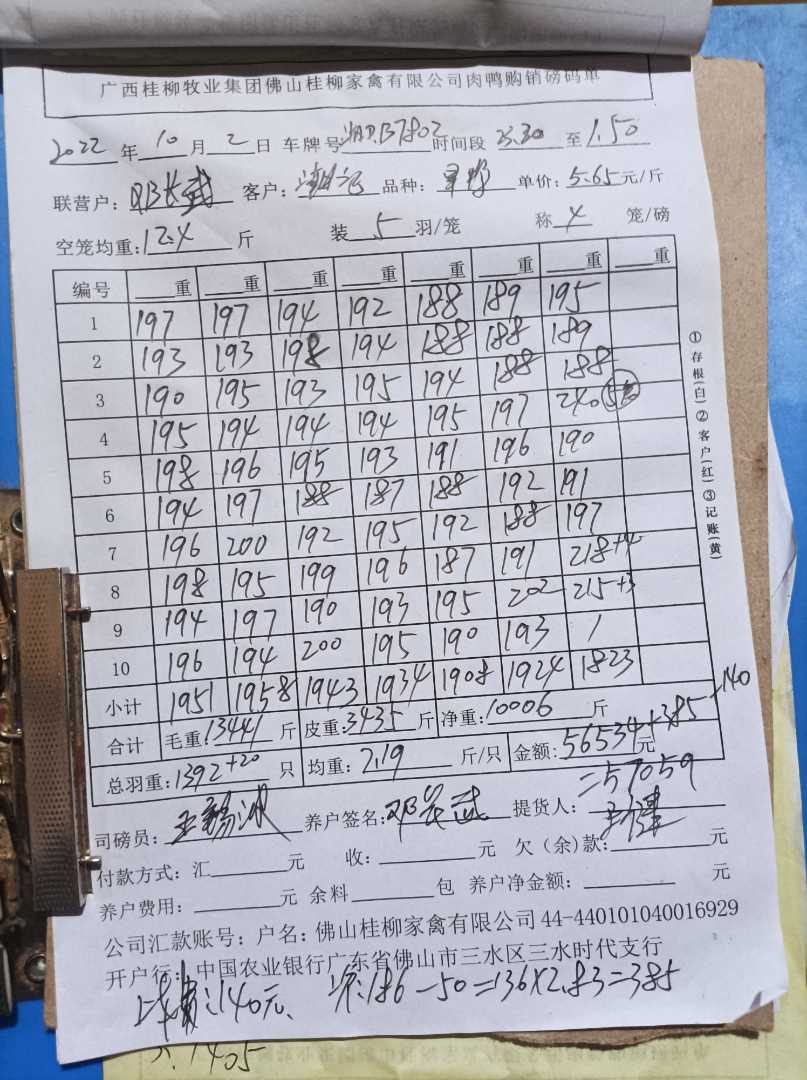 广西桂柳牧业集团佛山桂柳家禽有限公司肉鸭购销磅码单
2022 年 10 月 2 日 车牌号 B7802 时间段 23.30 至 1.50
联营户: 邓长武 客户: 品种: 单价: 5.65 元/斤
空笼均重: 12.4 斤 装 5 羽/笼 称 4 笼/磅
编号 重 重 重 重 重 重 重 重
1 197 197 194 192 188 189 195
2 193 193 198 194 188 188 189
3 190 195 193 195 194 188 188
4 195 194 194 194 195 197 240
5 198 196 195 193 191 196 190
6 194 197 188 187 188 192 191
7 196 200 192 195 192 188 197
8 198 195 199 196 187 191 218+4
9 194 197 190 193 195 202 215+3
10 196 194 200 195 190 193 /
小计 1951 1958 1943 1934 1908 1924 1823
合计 毛重: 13441 斤 皮重: 3435 斤 净重: 10006 斤
总羽重: 1392+20 只 均重: 2.19 斤/只 金额: 56534+385+140 元
=57059
司磅员: 养户签名: 邓长武 提货人:
付款方式: 汇 元 收: 元 欠(余)款: 元
养户费用: 元 余料 包 养户净金额: 元
公司汇款账号: 户名: 佛山桂柳家禽有限公司 44-440101040016929
开户行: 中国农业银行广东省佛山市三水区三水时代支行
140元、 186-50=136×2.83=385
1405
①存根(白)②客户(红)③记账(黄)